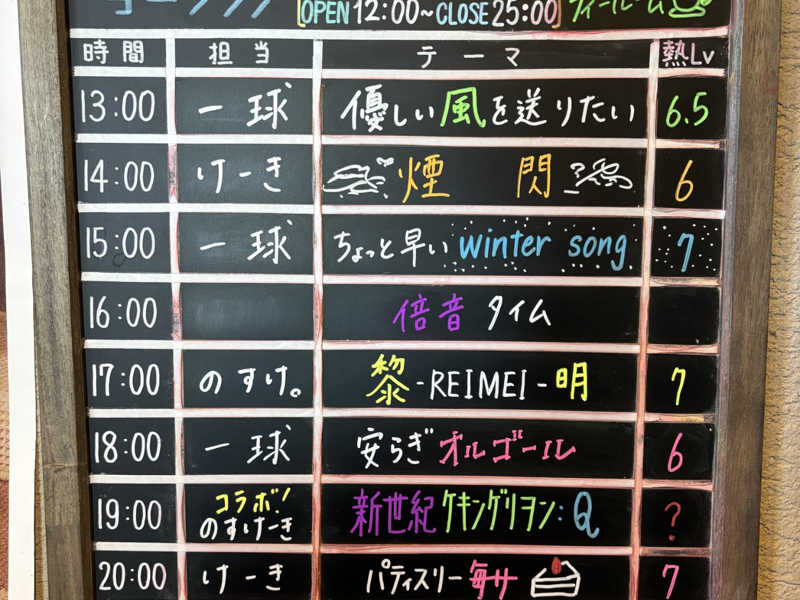 [OPEN 12:00~CLOSE 25:00]
時間 担当 テーマ 熱Lv
13:00 一球 優しい風を送りたい 6.5
14:00 けーき 煙 閃 6
15:00 一球 ちょっと早い winter song 7
16:00 倍音タイム
17:00 のすけ。 黎-REIMEI-明 7
18:00 一球 安らぎオルゴール 6
19:00 コラボ! のすけーき 新世紀ケキングリヨン:Q ?
20:00 けーき パティスリー毎サ 7